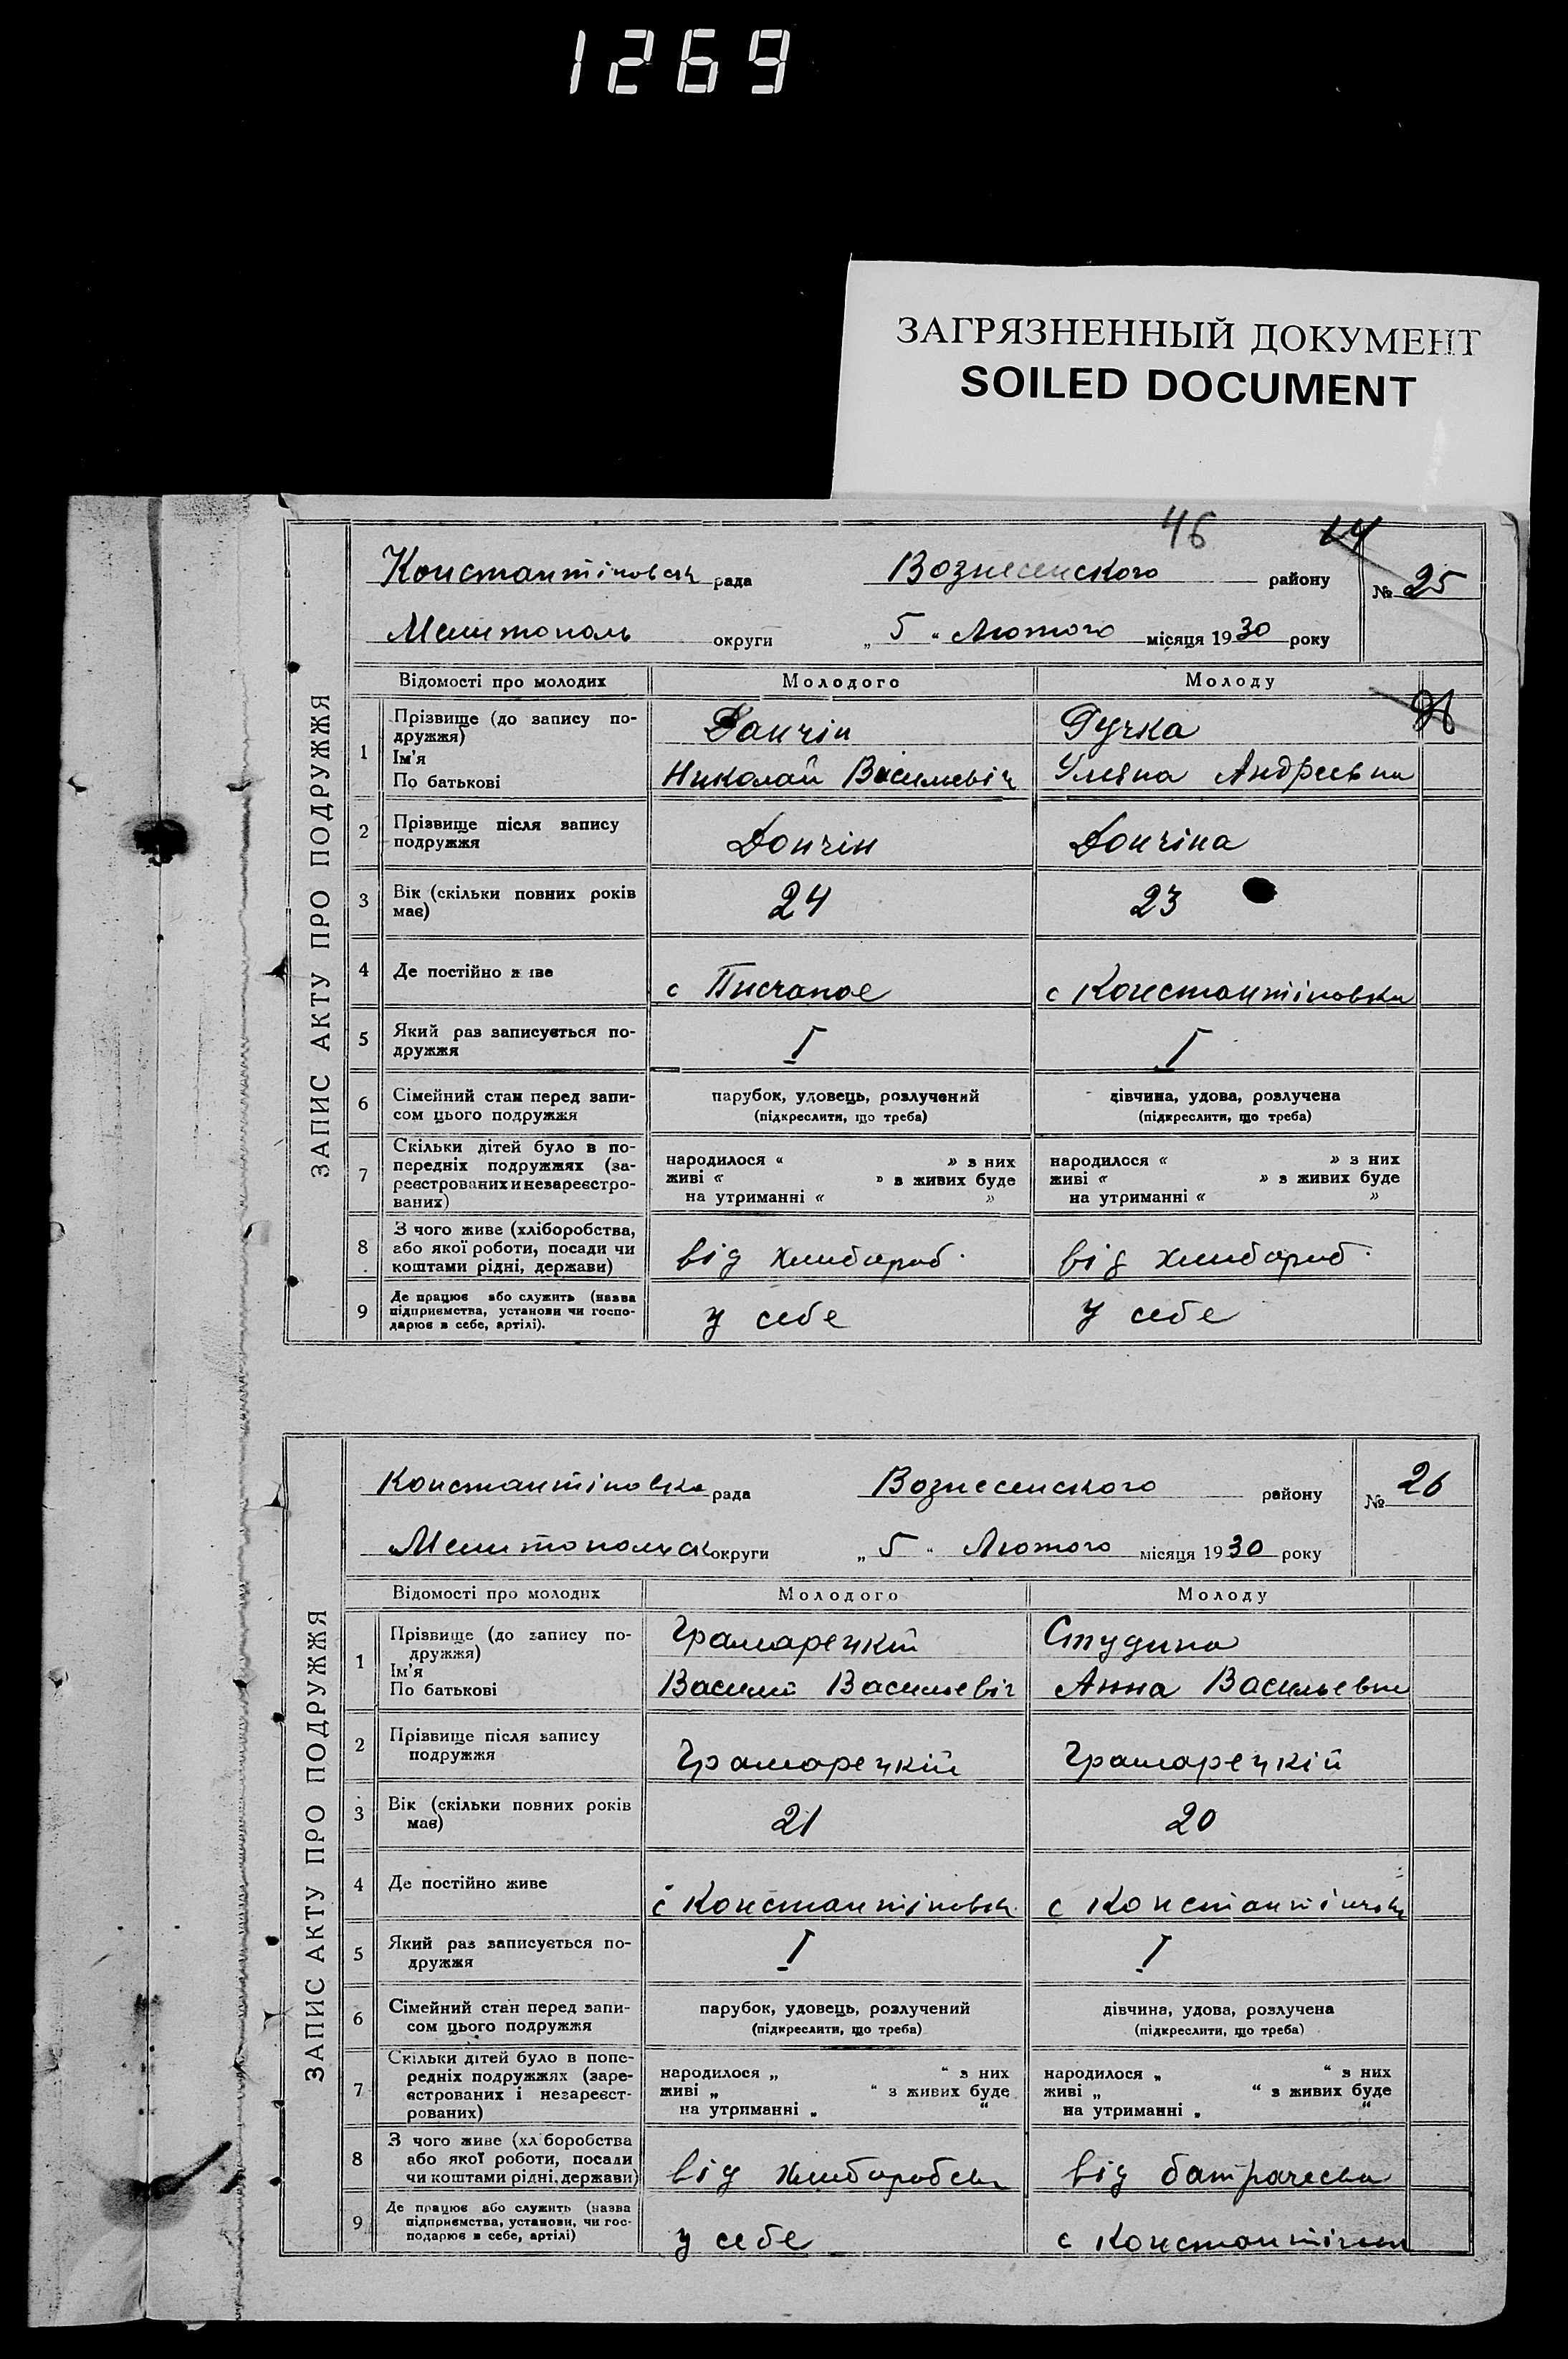 1269
ЗАГРЯЗНЕННЫЙ ДОКУМЕНТ
SOILED DOCUMENT
46
ЗАПИС АКТУ ПРО ПОДРУЖЖЯ
Константіновск рада Вознесенского району № 25
Мелитополь округи „ 5 “ Лютого місяця 1930 року
Відомості про молодих Молодого Молоду
1 Прізвище (до запису по-
дружжя)
Дончін Гучка
Ім'я
По батькові
Николай Васильевіч Уляна Андреевна
2 Прізвище після запису
подружжя
Дончін Дончіна
3 Вік (скільки повних років
має)
24 23
4 Де постійно живе
с Писчаное с Константіновка
5 Який раз записується по-
дружжя
I I
6 Сімейний стан перед запи-
сом цього подружжя
парубок, удовець, розлучений дівчина, удова, розлучена
(підкреслити, що треба) (підкреслити, що треба)
7 Скільки дітей було в по-
передніх подружжях (за-
реєстрованих и незареєстро-
ваних)
народилося “ ” з них народилося “ ” з них
живі “ ” з живих буде живі “ ” з живих буде
на утриманні “ ” на утриманні “ ”
8 З чого живе (хліборобства,
або якої роботи, посади чи
коштами рідні, держави)
від хлибороб. від хлибороб.
9 Де працює або служить (назва
підприємства, установи чи госпо-
дарює в себе, артілі).
у себе у себе
ЗАПИС АКТУ ПРО ПОДРУЖЖЯ
Константіновска рада Вознесенского району № 26
Мелитопольск округи „ 5 “ Лютого місяця 1930 року
Відомості про молодих Молодого Молоду
1 Прізвище (до запису по-
дружжя)
Грамарецкій Студина
Ім'я
По батькові
Василий Васильевіч Анна Васильевна
2 Прізвище після запису
подружжя
Грамарецкій Грамарецкій
3 Вік (скільки повних років
має)
21 20
4 Де постійно живе
с Константіновк с Константіновк
5 Який раз записується по-
дружжя
I I
6 Сімейний стан перед запи-
сом цього подружжя
парубок, удовець, розлучений дівчина, удова, розлучена
(підкреслити, що треба) (підкреслити, що треба)
7 Скільки дітей було в попе-
редніх подружжях (заре-
єстрованих і незареєст-
рованих)
народилося „ “ з них народилося „ “ з них
живі „ “ з живих буде живі „ “ з живих буде
на утриманні „ “ на утриманні „ “
8 З чого живе (хліборобства
або якої роботи, посади
чи коштами рідні, держави)
від хлиборобства від батрачества
9 Де працює або служить (назва
підприємства, установи, чи гос-
подарює в себе, артілі)
у себе с